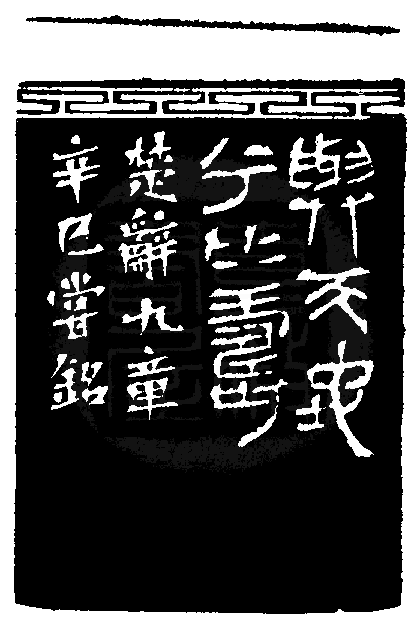 與天地
兮比壽
楚辭九章
辛巳甞銘